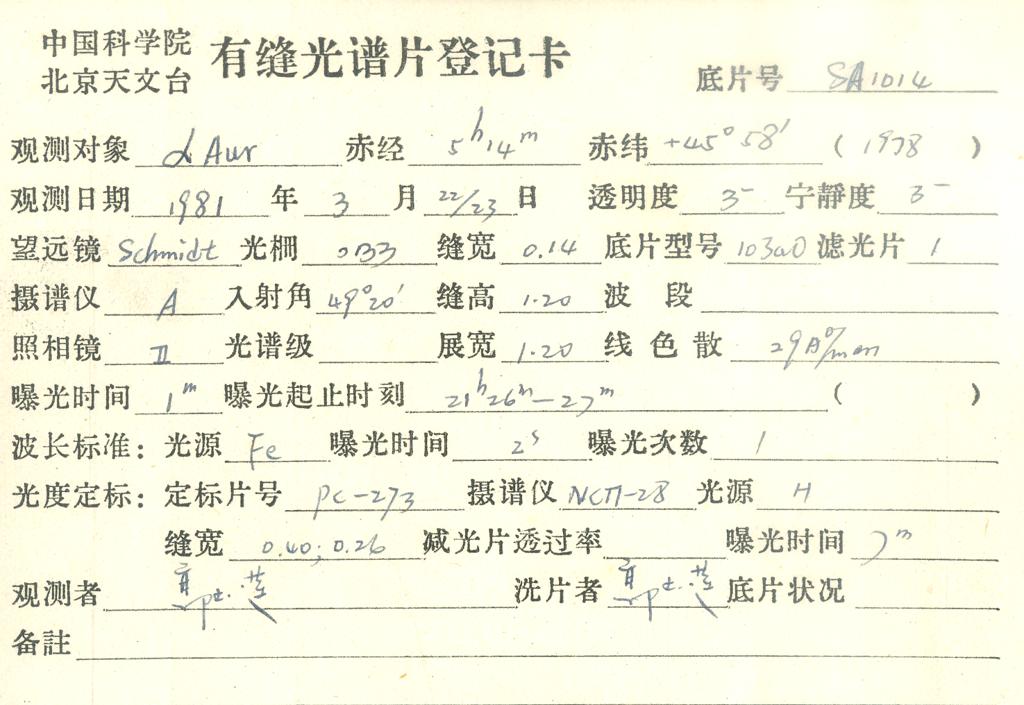 中国科学院
北京天文台 有缝光谱片登记卡 底片号 SA1014
观测对象 α Aur 赤经 5h14m 赤纬 +45°58′ (1978)
观测日期 1981 年 3 月 22/23 日 透明度 3- 宁静度 3-
望远镜 Schmidt 光栅 0133 缝宽 0.14 底片型号 103aO 滤光片 1
摄谱仪 A 入射角 49°20′ 缝高 1.20 波 段
照相镜 II 光谱级 展宽 1.20 线 色 散 29A°/mm
曝光时间 1m 曝光起止时刻 21h26m—27m ( )
波长标准: 光源 Fe 曝光时间 2s 曝光次数 1
光度定标: 定标片号 PC-273 摄谱仪 ИСП-28 光源 H
缝宽 0.40; 0.26 减光片透过率 曝光时间 7m
观测者 洗片者 底片状况
备註